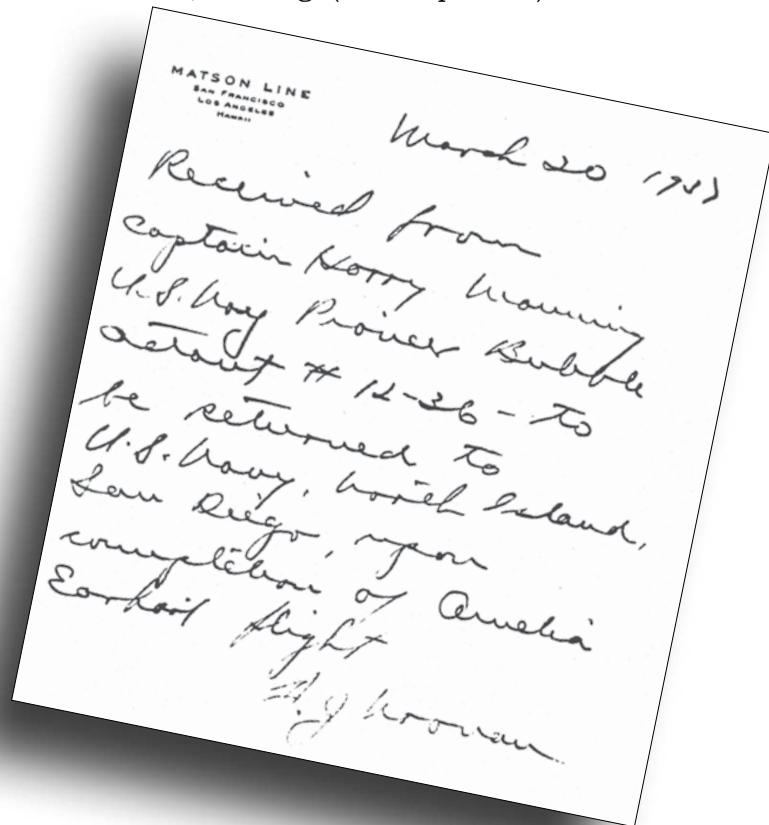 MATSON LINE
SAN FRANCISCO
LOS ANGELES
HAWAII
March 20 1937
Received from
Captain Harry Manning
U.S. Navy Pioneer Bubble
octant # 12-36 - to
be returned to
U.S. Navy, North Island,
San Diego, upon
completion of Amelia
Earhart flight
F. J. Noonan